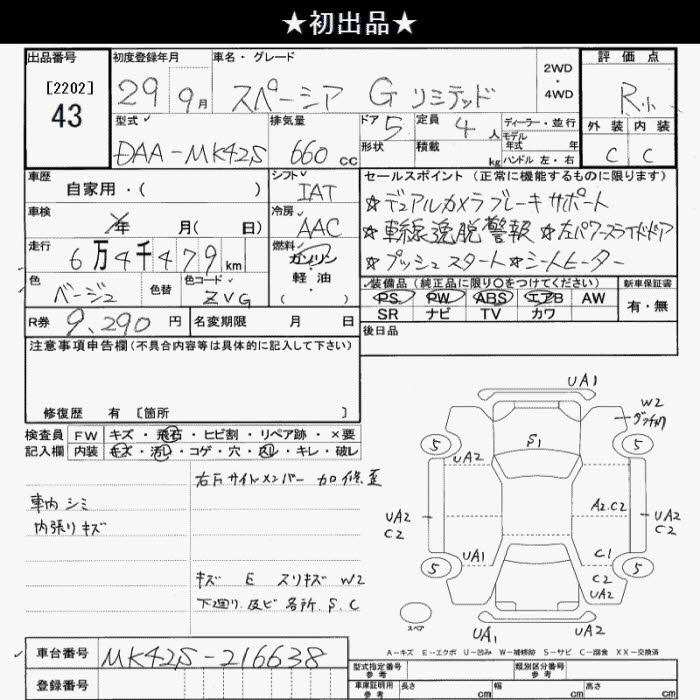 ★初出品★
出品番号
[2202]
43
初度登録年月
29 9月
車名・グレード
スペーシア G リミテッド
2WD
・
4WD
評価点
R小
外装 内装
C C
型式
DAA-MK42S
排気量
660 CC
ドア 5
形状
定員 4 人
積載 kg
ディーラー・並行
モデル
年式 年
ハンドル 左・右
車歴
自家用・( )
シフト
IAT
セールスポイント (正常に機能するものに限ります)
☆デュアルカメラブレーキサポート
☆車線逸脱警報 ☆左パワースライドドア
☆プッシュスタート ☆シートヒーター
車検
年 月( 日)
冷房
AAC
走行
6万4千479km
燃料
ガソリン
軽油
・( )
色
ベージュ
色替
色コード
ZVG
装備品 (純正品に限り○をつけてください)
PS PW ABS エアB AW
SR ナビ TV カワ
新車保証書
有・無
R券 9,290 円
名変期限 月 日
後日品
注意事項申告欄(不具合内容等は具体的に記入して下さい)
修復歴 有 [箇所 ]
検査員
記入欄
FW キズ・飛石・ヒビ割・リペア跡・×要
内装 キズ・汚レ・コゲ・穴・スレ・キレ・破レ
車内シミ
内張りキズ
右Fサイドメンバー加修歪
キズ E スリキズ W2
下廻り及び各所 S.C
UA1
W2
S1
5 5
UA2
UA2
C2
A2.C2
UA2
C2
UA1
C1
C2
UA2
5 5
スペア
UA1
UA2
A-キズ E-エクボ U-凹み W-補修跡 S-サビ C-腐食 XX-交換済
車台番号
MK42S-216638
登録番号
型式指定番号
参考
類別区分番号
参考
車庫証明用
参考
長さ cm
幅 cm
高さ cm